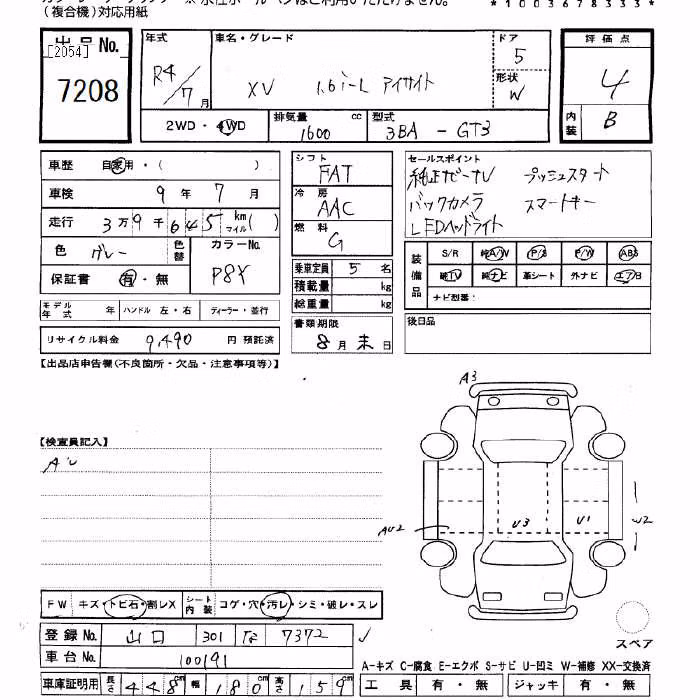 (複合機)対応用紙
*1003678333*
出品No.
[2054]
7208
年式
R4/7月
車名・グレード
XV 1.6i-L アイサイト
ドア
5
形状
W
評価点
4
内装
B
2WD・4WD
排気量
1600 cc
型式
3BA - GT3
車歴 自家用・( )
車検 9年7月
走行 3万9千645 km マイル( )
色 グレー 色替
カラーNo.
P8Y
保証書 有・無
シフト
FAT
冷房
AAC
燃料
G
乗車定員 5名
積載量 kg
総重量 kg
セールスポイント
純正ナビTV プッシュスタート
バックカメラ スマートキー
LEDヘッドライト
装備品
S/R 純A/W P/S P/W ABS
純TV 純ナビ 革シート 外ナビ エアB
ナビ型番:
モデル年式 年 ハンドル 左・右 ディーラー・並行
リサイクル料金 9,490 円 預託済
書類期限
8月末日
後日品
【出品店申告欄(不良箇所・欠品・注意事項等)】
A3
【検査員記入】
AU2
U3
U1
W2
FW キズ・トビ石・割レX シート内装 コゲ・穴・汚レ・シミ・破レ・スレ
登録No. 山口 301 な 7372
車台No. 100191
車庫証明用 長さ 448cm 幅 180cm 高さ 159
スペア
A-キズ C-腐食 E-エクボ S-サビ U-凹ミ W-補修 XX-交換済
工具 有・無 ジャッキ 有・無